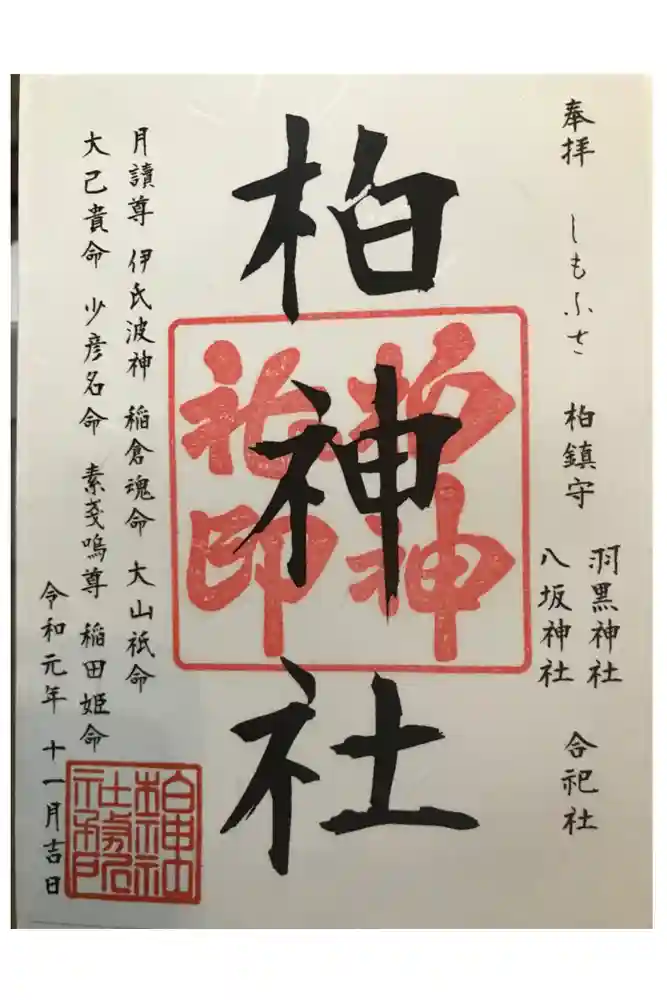 奉拝 しもふさ 柏鎮守
羽黒神社
八坂神社
合祀社
柏神社
柏神
社印
月讀尊 伊氐波神 稲倉魂命 大山祇命
大己貴命 少彦名命 素戔嗚尊 稲田姫命
令和元年 十一月吉日
柏神社
社務所印